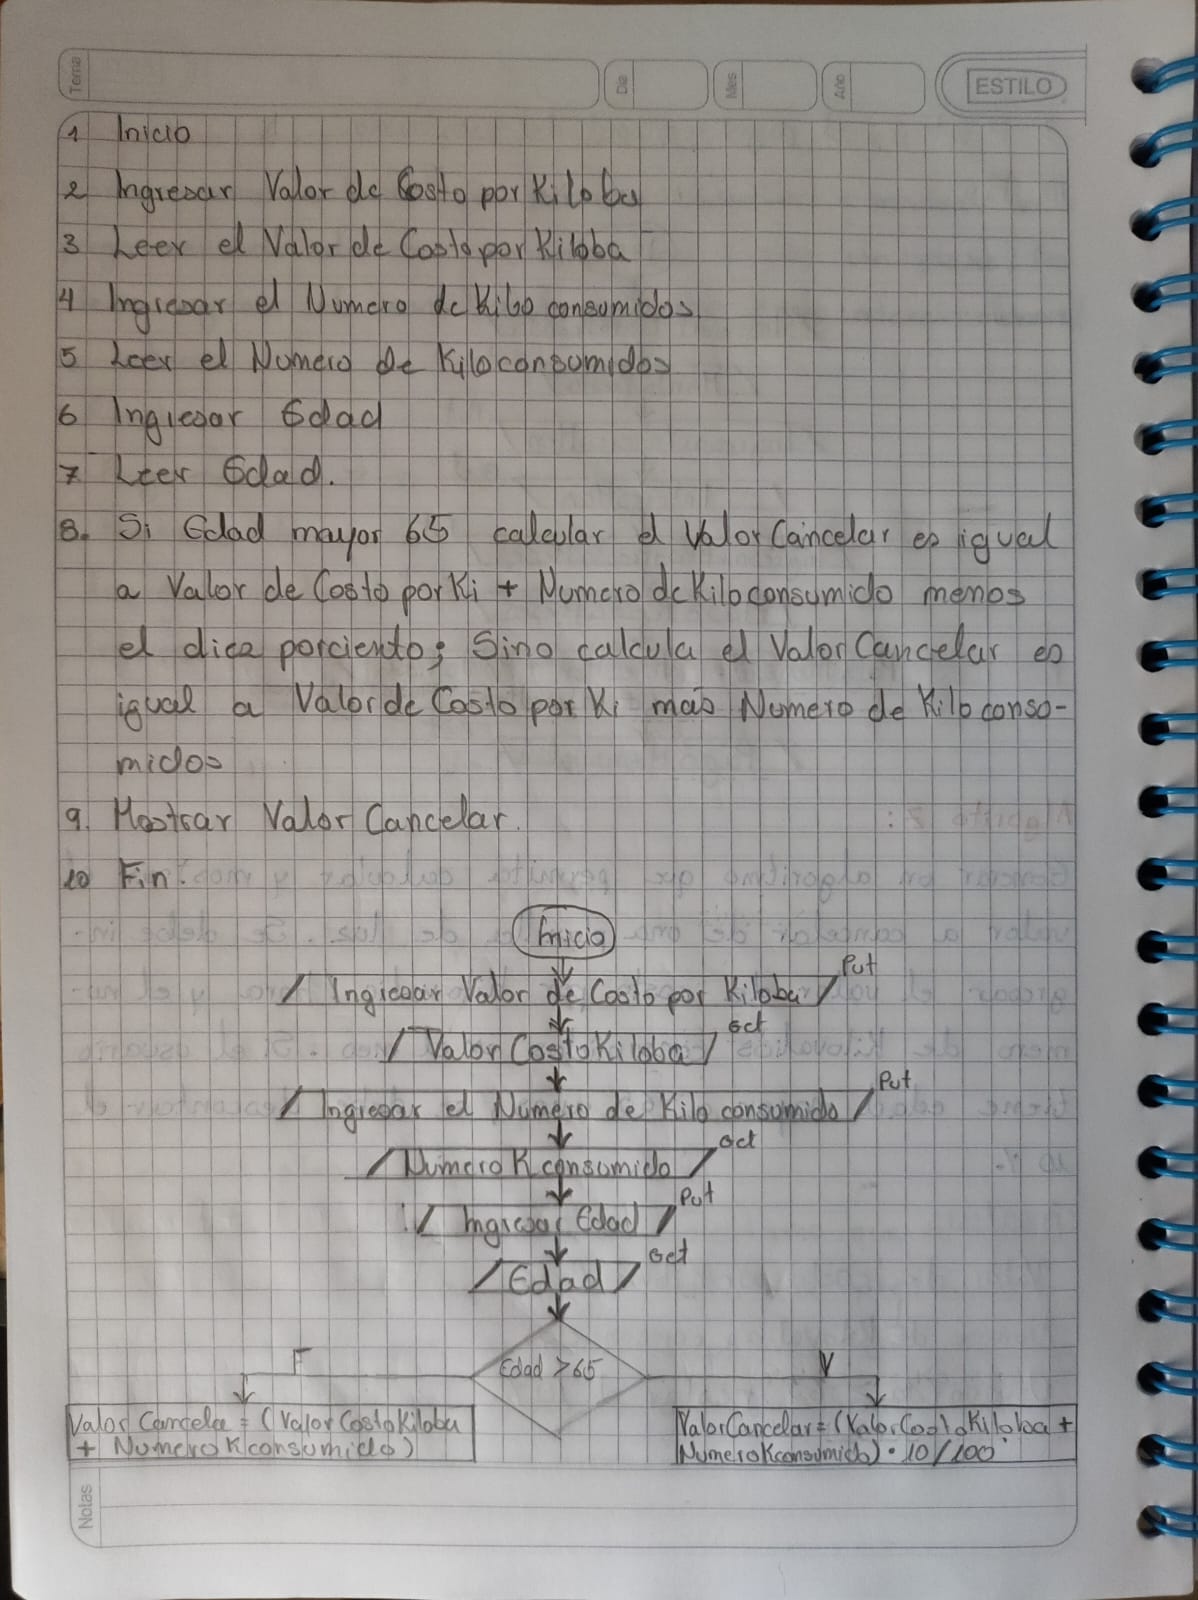 Tema
Dia
Mes
Año
ESTILO
1 Inicio
2 Ingresar Valor de Costo por Kiloba
3 Leer el Valor de Costo por Kiloba
4 Ingresar el Numero de Kilo consumidos
5 Leer el Numero de Kilo consumidos
6 Ingresar Edad
7 Leer Edad.
8. Si Edad mayor 65 calcular el Valor Cancelar es igual
a Valor de Costo por Ki + Numero de Kilo consumido menos
el diez porciento; Sino calcula el Valor Cancelar es
igual a Valor de Costo por Ki mas Numero de Kilo conso-
midos
9. Mostrar Valor Cancelar.
10 Fin.
Inicio
Ingresar Valor de Costo por Kiloba Put
Valor Costo Kiloba Get
Ingresar el Numero de Kilo consumido Put
Numero K consumido Get
Ingresar Edad Put
Edad Get
F Edad > 65 V
Valor Cancela = (Valor Costo Kiloba
+ Numero K consumido)
Valor Cancelar = (Valor Costo Kiloba +
Numero K consumido) · 10/100
Notas